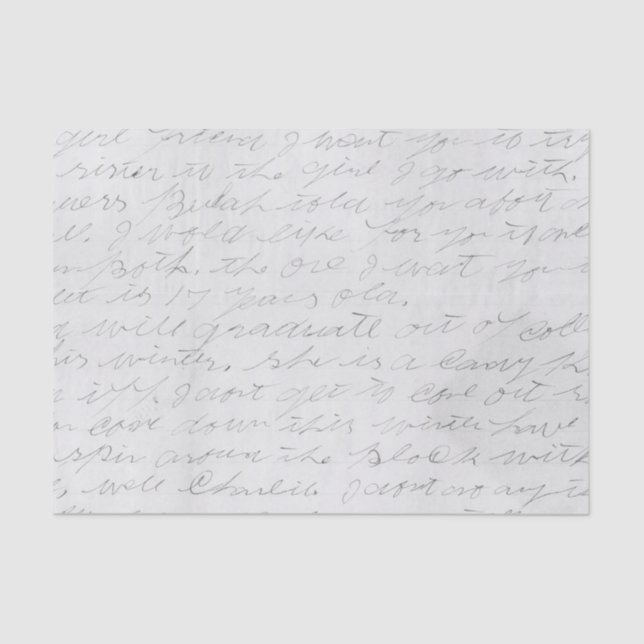 girl friend I want you to try
sister to the girl I go with.
Bulah told you about
I would like for you to
Both. the one I want you
is 17 years old.
will graduate out of coll
his winter. she is a candy K
I dont get to come out
come down this winter have
spin around the block with
well Charlie I dont any